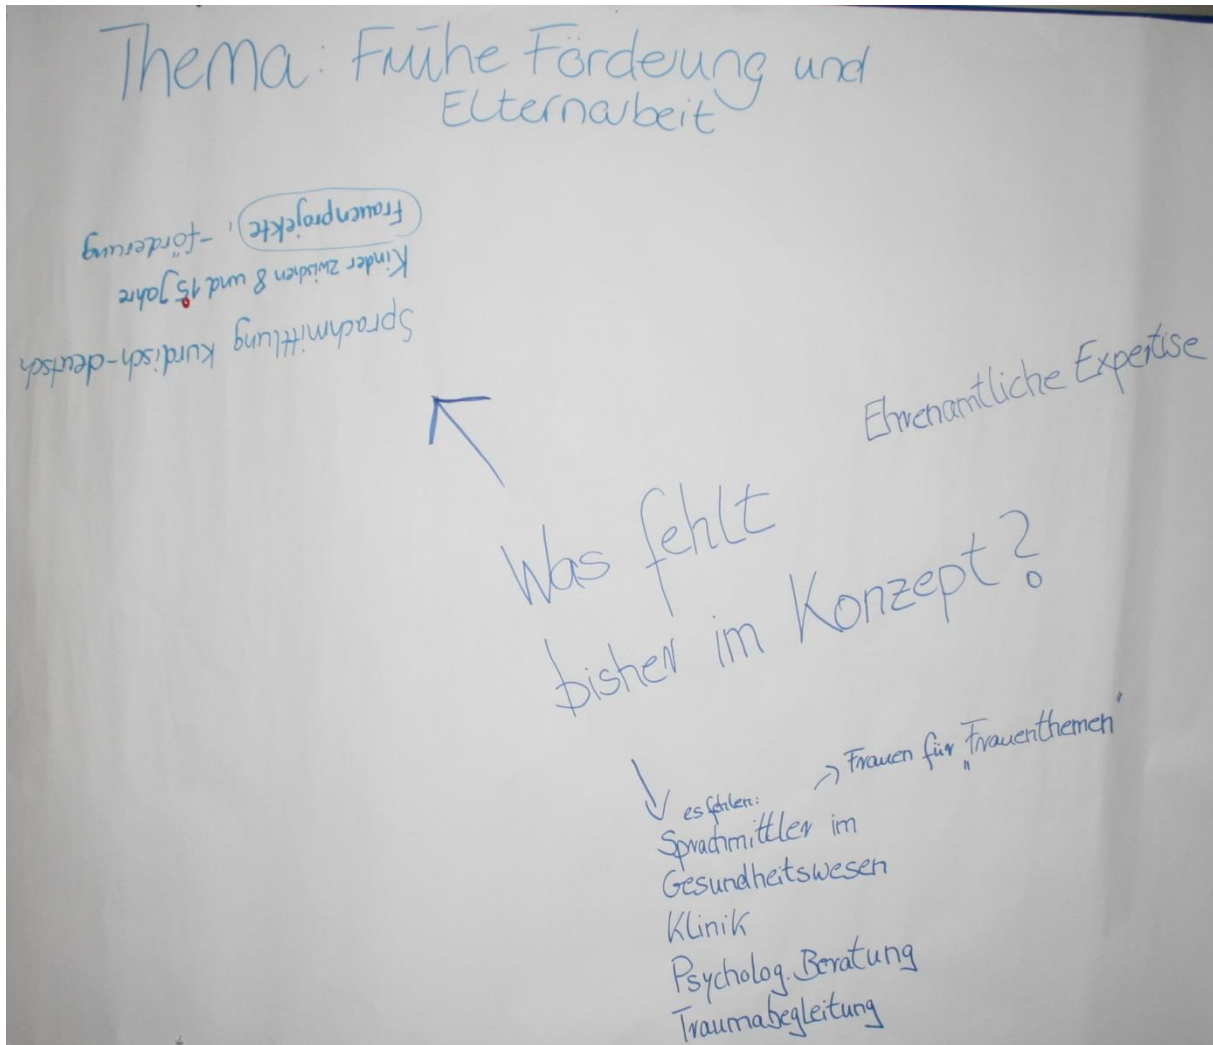 Thema: Frühe Förderung und
Elternarbeit
Sprachmittlung Kurdisch-deutsch
Kinder zwischen 8 und 15 Jahre
Frauenprojekte, -förderung
Ehrenamtliche Expertise
Was fehlt
bisher im Konzept?
→ Frauen für „Frauenthemen"
es fehlen:
Sprachmittler im
Gesundheitswesen
Klinik
Psycholog. Beratung
Traumabegleitung